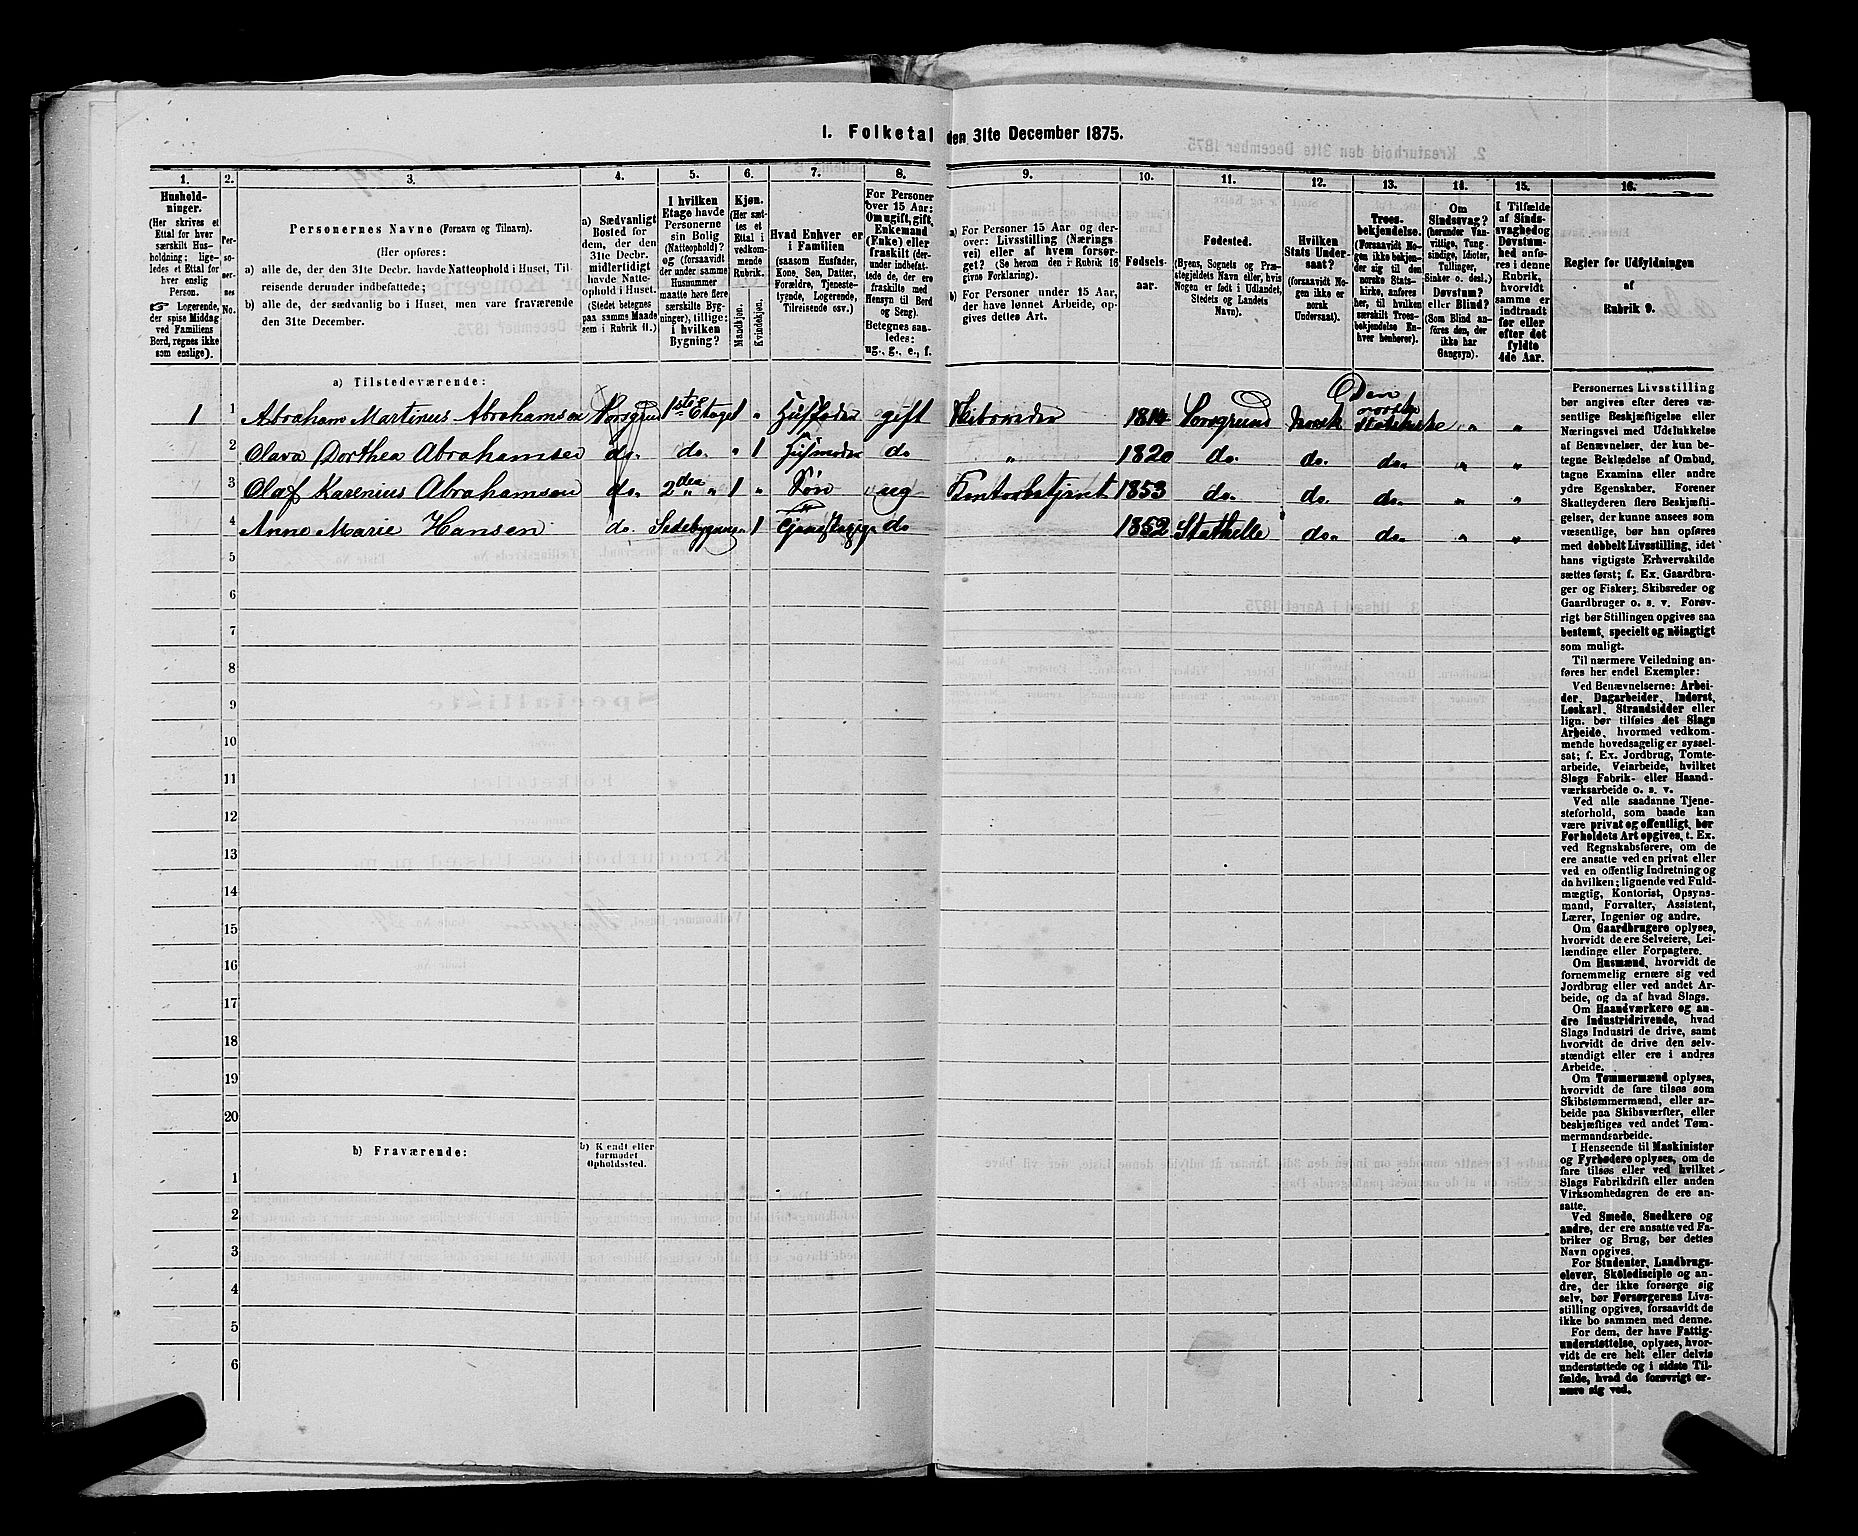 1. Folketal den 31te December 1875.
1. 2. 3. 4. 5. 6. 7. 8. 9. 10. 11. 12. 13. 14. 15. 16.
Hushold-
ninger.
(Her skrives et
Ettal for hver
særskilt Hus-
holdning; lige-
ledes et Ettal for
hver enslig
Person.
☞ Logerende,
der spise Middag
ved Familiens
Bord, regnes ikke
som enslige).
Per-
so-
ner-
nes
No.
Personernes Navne (Fornavn og Tilnavn).
(Her opføres:
a) alle de, der den 31te Decbr. havde Natteophold i Huset, Til-
reisende derunder indbefattede;
b) alle de, der sædvanlig bo i Huset, men vare fraværende
den 31te December.
a) Sædvanligt
Bosted for
dem, der den
31te Decbr.
midlertidigt
havde Natte-
ophold i Huset.
(Stedet betegnes
paa samme Maade
som i Rubrik 11.)
I hvilken
Etage havde
Personerne
sin Bolig
(Natteophold)?
og (forsaavidt
der under samme
Husnummer
maatte høre flere
særskilte Byg-
ninger), tillige:
i hvilken
Bygning?
Kjøn.
(Her sæt-
tes et
Ettal i
vedkom-
mende
Rubrik.
Mandkjøn.
Kvindekjøn.
Hvad Enhver er
i Familien
(saasom Husfader,
Kone, Søn, Datter,
Forældre, Tjeneste-
tyende, Logerende,
Tilreisende osv.)
For Personer
over 15 Aar:
Om ugift, gift,
Enkemand
(Enke) eller
fraskilt (der-
under indbefat-
tede de, der ere
fraskilte med
Hensyn til Bord
og Seng).
Betegnes saa-
ledes:
ug., g., e., f.
a) For Personer 15 Aar og der-
over: Livsstilling (Nærings
vei) eller af hvem forsør-
get? (Se herom den i Rubrik 16
givne Forklaring).
b) For Personer under 15 Aar,
der have lønnet Arbeide, op-
gives dettes Art.
Fødsels-
aar.
Fødested.
(Byens, Sognets og Præ-
stegjeldets Navn eller, hvis
Nogen er født i Udlandet,
Stedets og Landets
Navn).
Hvilken
Stats Under-
saat?
(forsaavidt No-
gen ikke er
norsk
Undersaat).
Troes-
bekjendelse.
(Forsaavidt No-
gen ikke bekjen-
der sig til den
norske Stats-
kirke, anføres
her, til hvilken
særskilt Troes-
bekjendelse En-
hver henhører).
Om
Sindssvag?
(herunder Van-
vittige, Tung-
sindige, Idioter,
Tullinger,
Sinker o. desl.)
Døvstum?
eller Blind?
(Som Blind an-
føres den, der
ikke har
Gangsyn).
I Tilfælde
af Sinds-
svaghed og
Døvstum-
hed anfø-
res i denne
Rubrik,
hvorvidt
samme er
indtraadt
før eller
efter det
fyldte
4de Aar.
Regler for Udfyldningen
af
Rubrik 9.
a) Tilstedeværende:
1 1 Abraham Martinus Abrahamsen Porsgrund 1ste Etage 1 " Husfader gift Skibsreder 1814 Porsgrund Norsk Den norske Statskirke " "
2 Olava Dorthea Abrahamsen do. do. " 1 Husmoder do " 1820 do. do. do. " "
3 Olaf Karenius Abrahamsen do. 2den " 1 " Søn ug Contorbetjent 1853 do. do. do. " "
4 Anne Marie Hansen do. Sidebygning " 1 do 1852 Stathelle do. do. " "
5
6
7
8
9
10
11
12
13
14
15
16
17
18
19
20
b) Fraværende:
b) Kjendt eller
formodet
Opholdssted.
1
2
3
4
5
6
Personernes Livsstilling
bør angives efter deres væ-
sentlige Beskjæftigelse eller
Næringsvei med Udelukkelse
af Benævnelser, der kun be-
tegne Beklædelse af Ombud,
tagne Examina eller andre
ydre Egenskaber. Forener
Skatteyderen flere Beskjæfti-
gelser, der kunne ansees som
væsentlige, bør han opføres
med dobbelt Livsstilling, idet
hans vigtigste Erhvervskilde
sættes først; f. Ex. Gaardbru-
ger og Fisker; Skibsreder og
Gaardbruger o. s. v. Forøv-
rigt bør Stillingen opgives saa
bestemt, specielt og nöiagtigt
som muligt.
Til nærmere Veiledning an-
føres her endel Exempler:
Ved Benævnelserne: Arbei-
der, Dagarbeider, Inderst,
Løskarl, Strandsidder eller
lign. bør tilføies det Slags
Arbeide, hvormed vedkom-
mende hovedsagelig er syssel-
sat; f. Ex. Jordbrug, Tomte-
arbeide, Veiarbeide, hvilket
Slags Fabrik- eller Haand-
værksarbeide o. s. v.
Ved alle saadanne Tjene-
steforhold, som baade kan
være privat og offentligt, bør
Forholdets Art opgives, t. Ex.
ved Regnskabsførere, om de
ere ansatte ved en privat eller
ved en offentlig Indretning og
da hvilken; lignende ved Fuld-
mægtig, Kontorist, Opsyns-
mand, Forvalter, Assistent,
Lærer, Ingeniør og andre.
Om Gaardbrugere oplyses,
hvorvidt de ere Selveiere, Lei-
lændinge eller Forpagtere.
Om Husmænd, hvorvidt de
fornemmelig ernære sig ved
Jordbrug eller ved andet Ar-
beide, og da af hvad Slags.
Om Haandværkere og an-
dre Industridrivende, hvad
Slags Industri de drive, samt
hvorvidt de drive den selv-
stændigt eller ere i andres
Arbeide.
Om Tømmermænd oplyses,
hvorvidt de fare tilsøs som
Skibstømmermænd, eller ar-
beide paa Skibsværfter, eller
beskjæftiges ved andet Tøm-
mermandsarbeide.
I Henseende til Maskinister
og Fyrbødere oplyses, om de
fare tilsøs eller ved hvilket
Slags Fabrikdrift eller anden
Virksomhedsgren de ere an-
satte.
Ved Smede, Snedkere og
andre, der ere ansatte ved Fa-
briker og Brug, bør dettes
Navn opgives.
For Studenter, Landbrugs-
elever, Skoledisciple og an-
dre, der ikke forsørge sig
selv, bør Forsørgerens Livs-
stilling opgives, forsaavidt de
ikke bo sammen med denne.
For dem, der have Fattig-
understøttelse, oplyses, hvor-
vidt de ere helt eller delvis
understøttede og i sidste Til-
fælde, hvad de forøvrigt er-
nære sig ved.